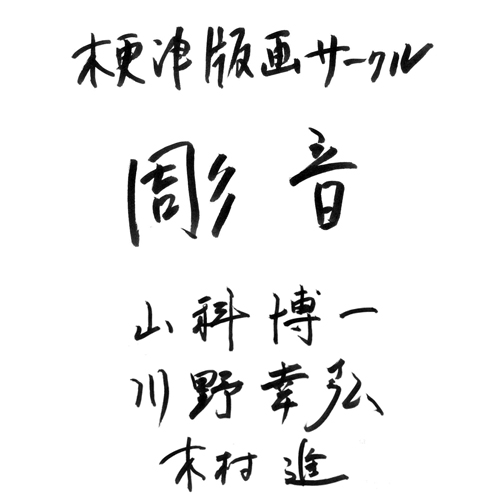 木更津版画サークル
彫音
山科博一
川野幸弘
木村進